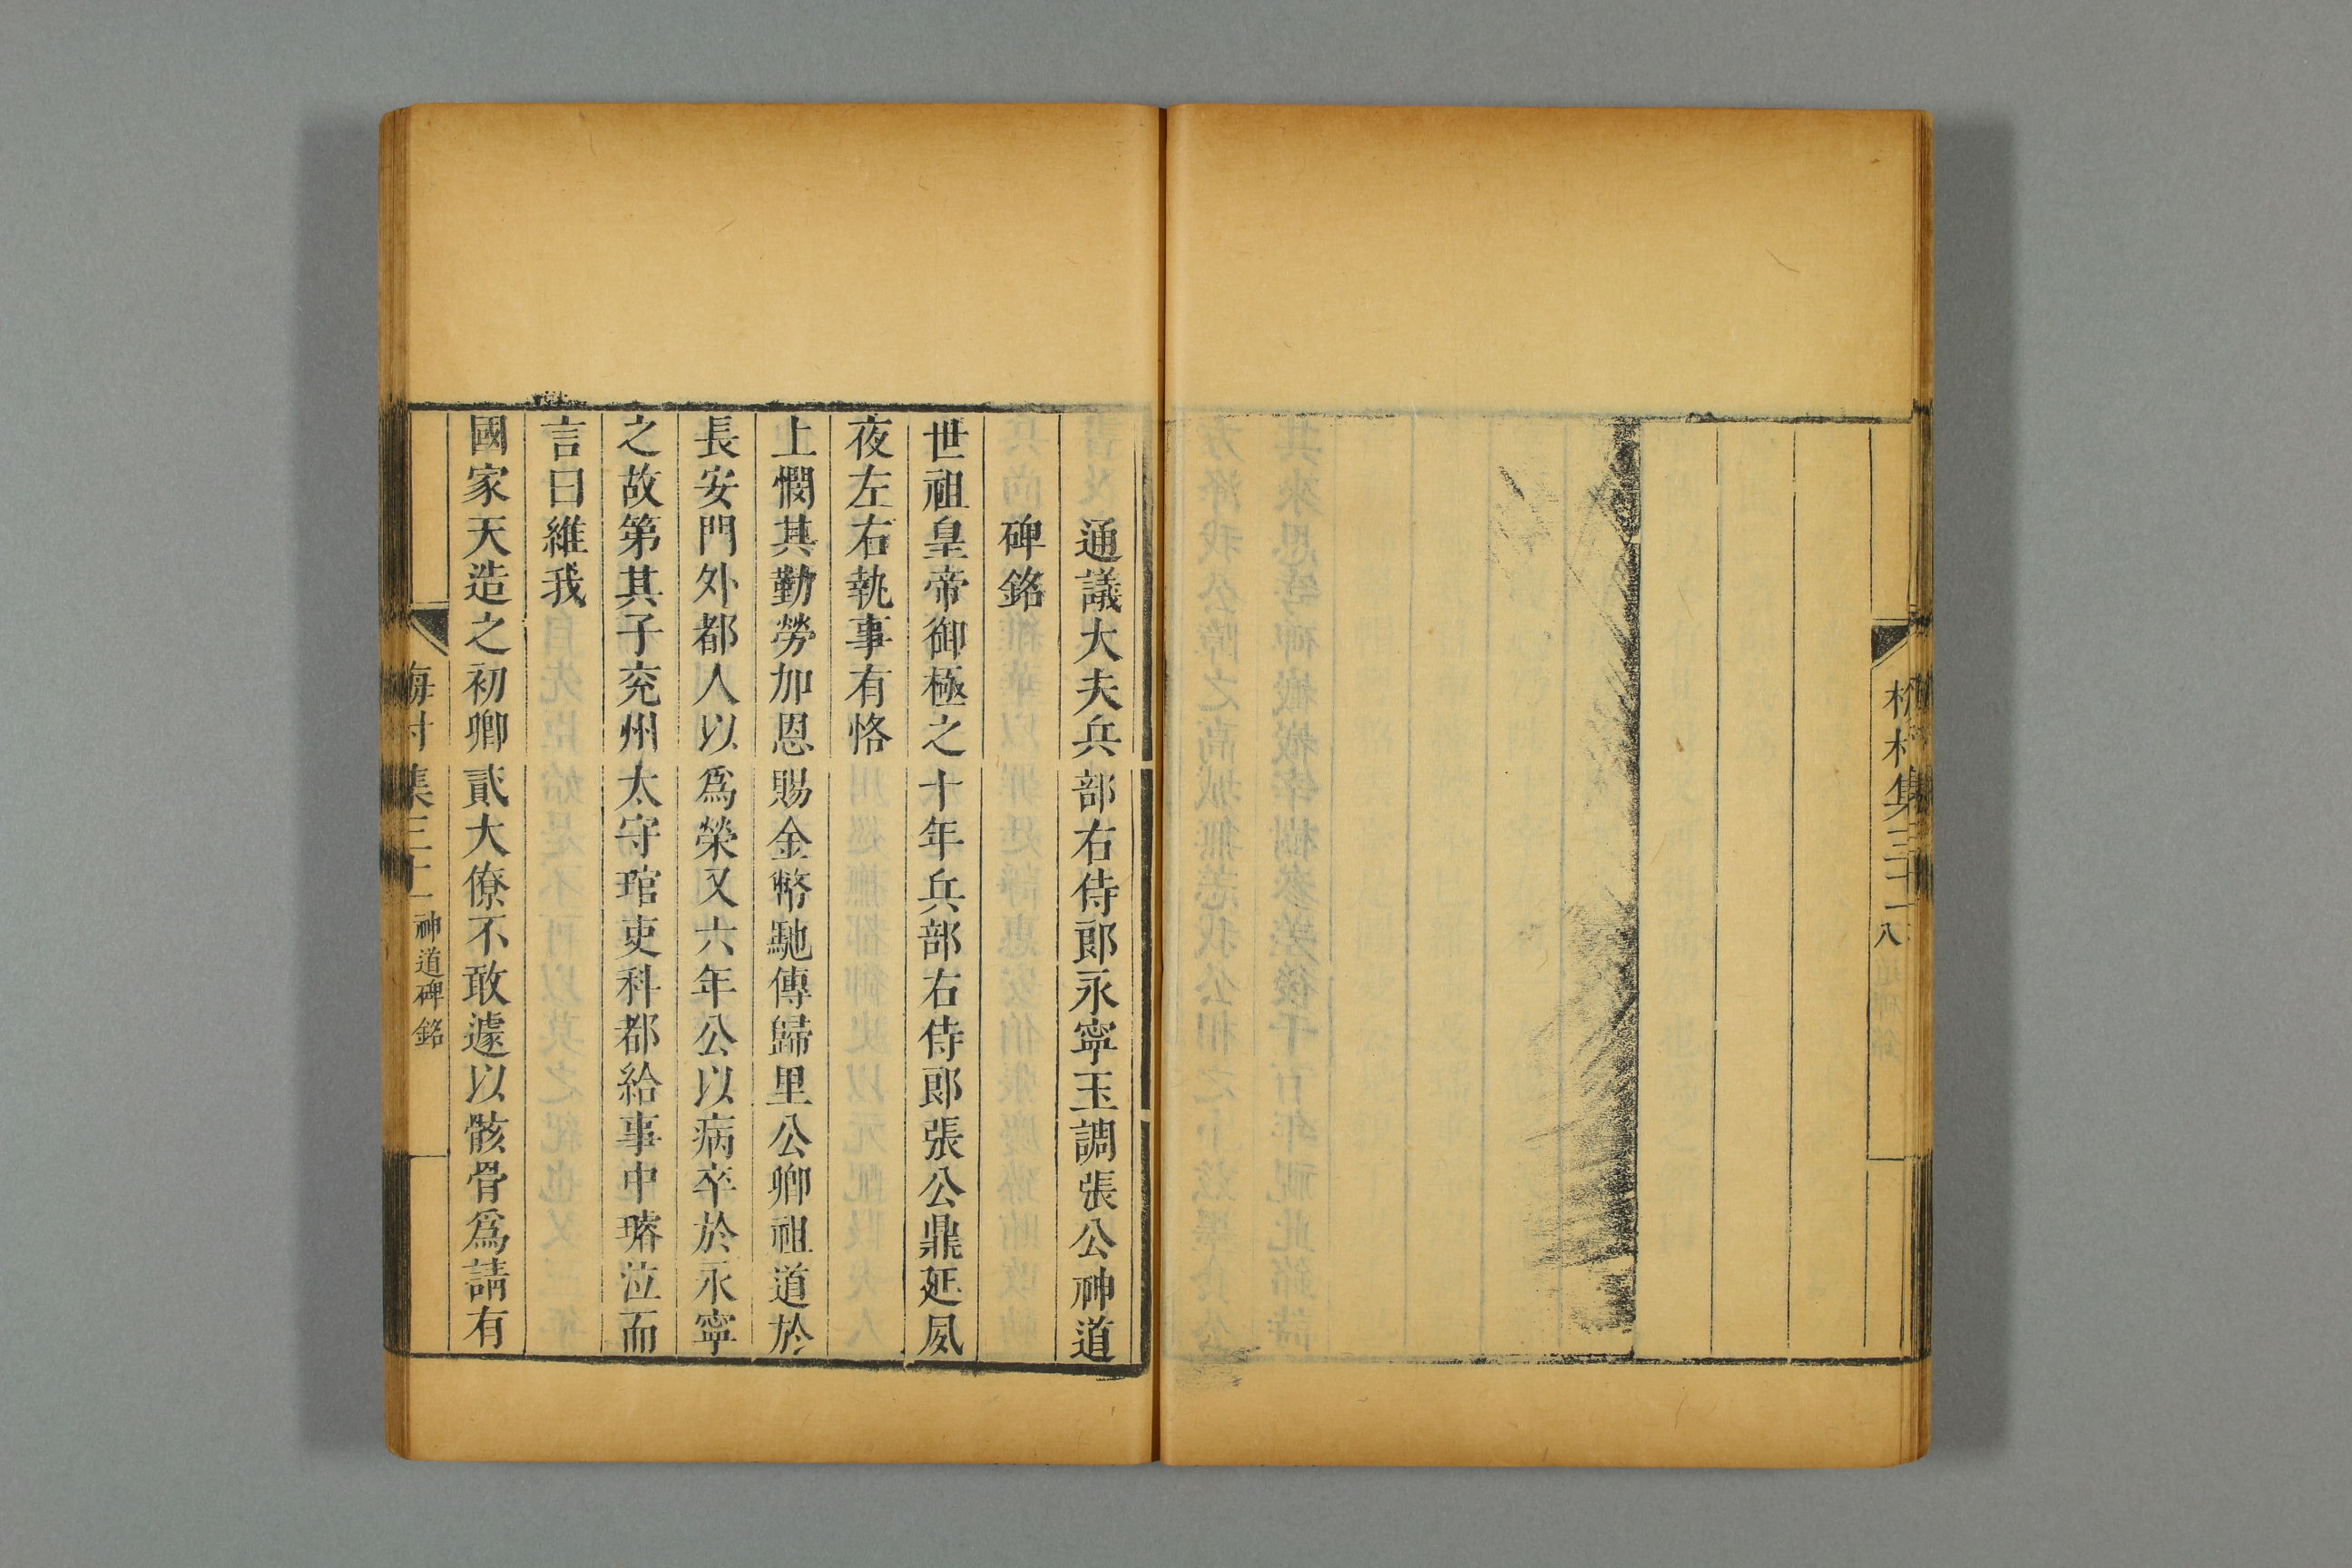 村集三十二
八
通議大夫兵部右侍郎永寧玉調張公神道
碑銘
世祖皇帝御極之十年兵部右侍郎張公鼎延夙
夜左右執事有恪
上憫其勤勞加恩賜金幣馳傳歸里公卿祖道於
長安門外都人以爲榮又六年公以病卒於永寧
之故第其子兖州太守琯吏科都給事中璿泣而
言曰維我
國家天造之初卿貳大僚不敢遽以骸骨爲請有
集三十二 神道碑銘